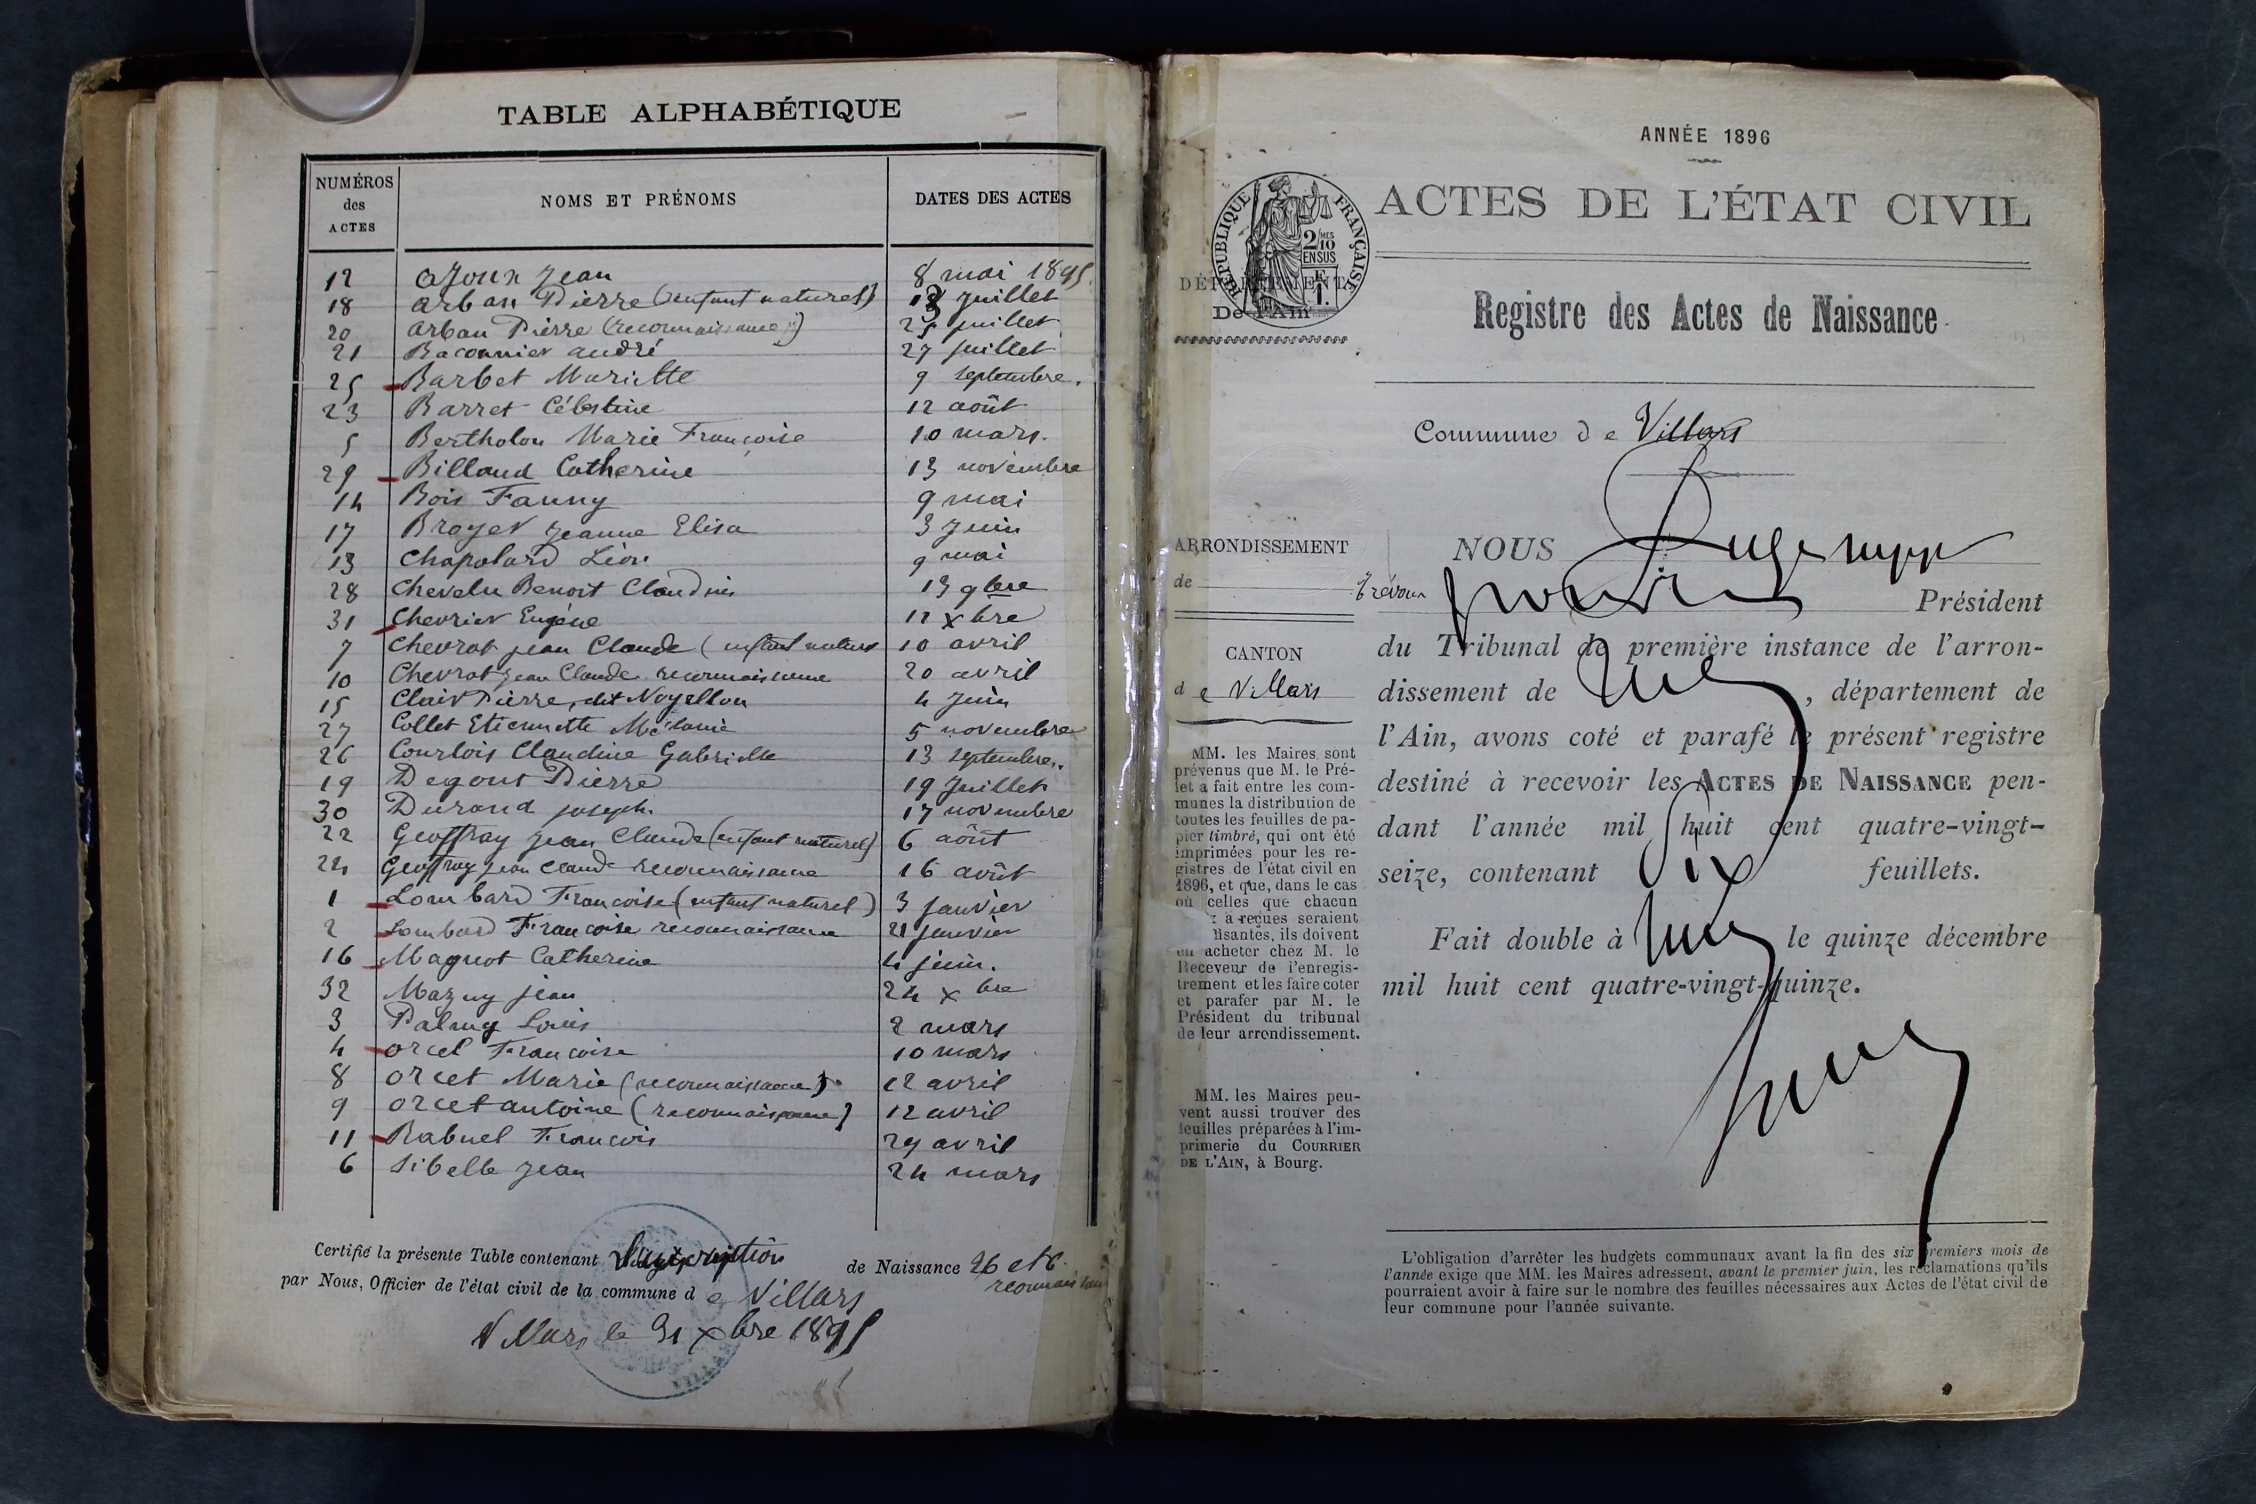 TABLE ALPHABÉTIQUE
NUMÉROS des ACTES NOMS ET PRÉNOMS DATES DES ACTES
12 Ajoux Jean 8 mai 1895
18 Arban Pierre (enfant naturel) 13 Juillet
20 Arban Pierre (reconnaissance) 25 juillet
21 Baconnier andré 27 juillet
25 Barbet Mariette 9 septembre.
23 Barret Célestine 12 août
5 Bertholon Marie Françoise 10 mars.
29 Billoud Catherine 13 novembre
14 Bois Fanny 9 mai
17 Broyer Jeanne Elisa 3 Juin
13 Chapolard Léon 9 mai
28 Chevelu Benoit Claudius 13 9bre
31 Chevrier Eugène 12 xbre
7 Chevrot jean Claude (enfant naturel 10 avril
10 Chevrot Jean Claude reconnaissance 20 avril
15 Clair Pierre, dit Noyellon 4 Juin
27 Collet Etiennette Mélanie 5 novembre
26 Courtois Claudine Gabrielle 13 septembre.
19 Degout Pierre 19 Juillet
30 Durand joseph 17 novembre
22 Geoffray Jean Claude (enfant naturel) 6 août
24 Geoffray Jean Claude reconnaissance 16 août
1 Lombard Françoise (enfant naturel) 3 janvier
2 Lombard Françoise reconnaissance 21 janvier
16 Magnot Catherine 4 juin.
32 Mazuy jean 24 xbre
3 Palmy Louis 2 mars
4 Orcel Françoise 10 mars
8 Orcet Marie (reconnaissance) 12 avril
9 Orcet antoine (reconnaissance) 12 avril
11 Rabuel François 29 avril
6 Sibelle Jean 24 mars
Certifié la présente Table contenant de Naissance 26 et 6 reconnaissan
par Nous, Officier de l'état civil de la commune d e Villars
Villars le 31 xbre 1895
ANNÉE 1896
ACTES DE L'ÉTAT CIVIL
RÉPUBLIQUE FRANÇAISE
2/10 MES
EN SUS
DÉPARTEMENT
De l'Ain
Registre des Actes de Naissance
Commune d e Villars
ARRONDISSEMENT
de Trévoux
CANTON
d e Villars
MM. les Maires sont
prévenus que M. le Pré-
fet a fait entre les com-
munes la distribution de
toutes les feuilles de pa-
pier timbré, qui ont été
imprimées pour les re-
gistres de l'état civil en
1896, et que, dans le cas
où celles que chacun
a reçues seraient
isantes, ils doivent
en acheter chez M. le
Receveur de l'enregis-
trement et les faire coter
et parafer par M. le
Président du tribunal
de leur arrondissement.
MM. les Maires peu-
vent aussi trouver des
feuilles préparées à l'im-
primerie du COURRIER
DE L'AIN, à Bourg.
NOUS
Président
du Tribunal de première instance de l'arron-
dissement de , département de
l'Ain, avons coté et parafé le présent registre
destiné à recevoir les ACTES DE NAISSANCE pen-
dant l'année mil huit cent quatre-vingt-
seize, contenant Six feuillets.
Fait double à le quinze décembre
mil huit cent quatre-vingt-quinze.
L'obligation d'arrêter les budgets communaux avant la fin des six premiers mois de
l'année exige que MM. les Maires adressent, avant le premier juin, les réclamations qu'ils
pourraient avoir à faire sur le nombre des feuilles nécessaires aux Actes de l'état civil de
leur commune pour l'année suivante.